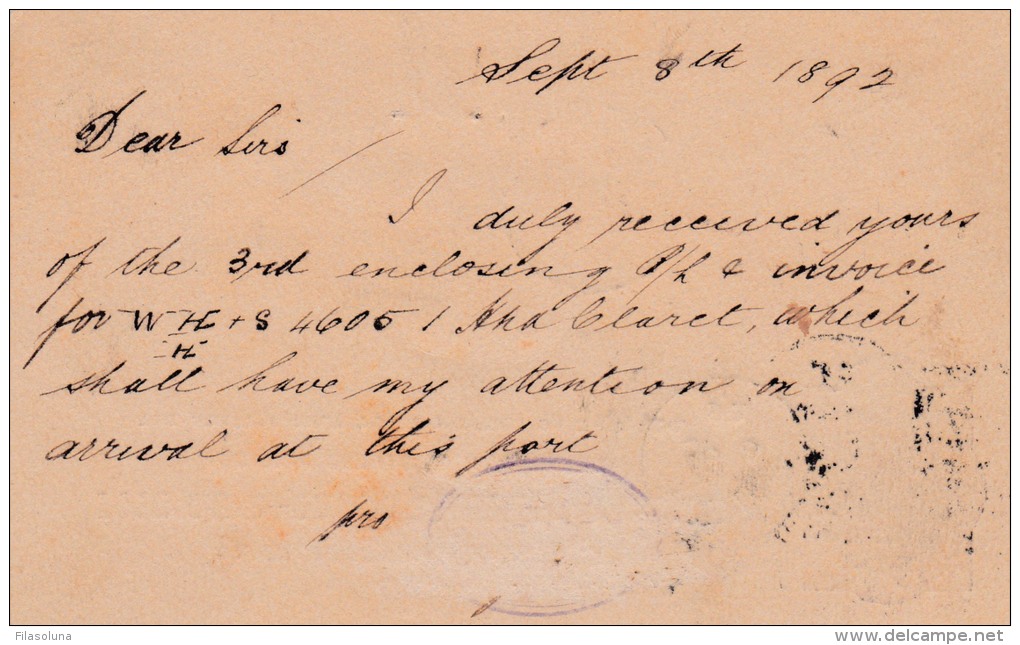 Sept 8th 1892
Dear Sirs
I duly received yours
of the 3rd enclosing B/L & invoice
for WH+S 4605 1 Hhd Claret, which
H
shall have my attention on
arrival at this port
pro
Filasoluna
www.delcampe.net